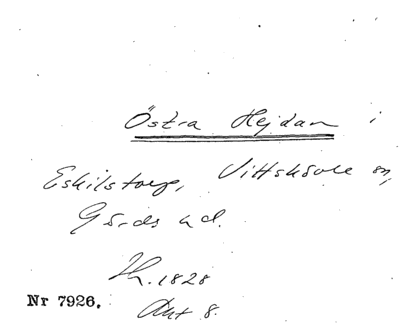 Östra Hejdan i
Eskilstorp, Vittskövle sn,
Gärds hd.
Lh. 1828
Akt 8.
Nr 7926.